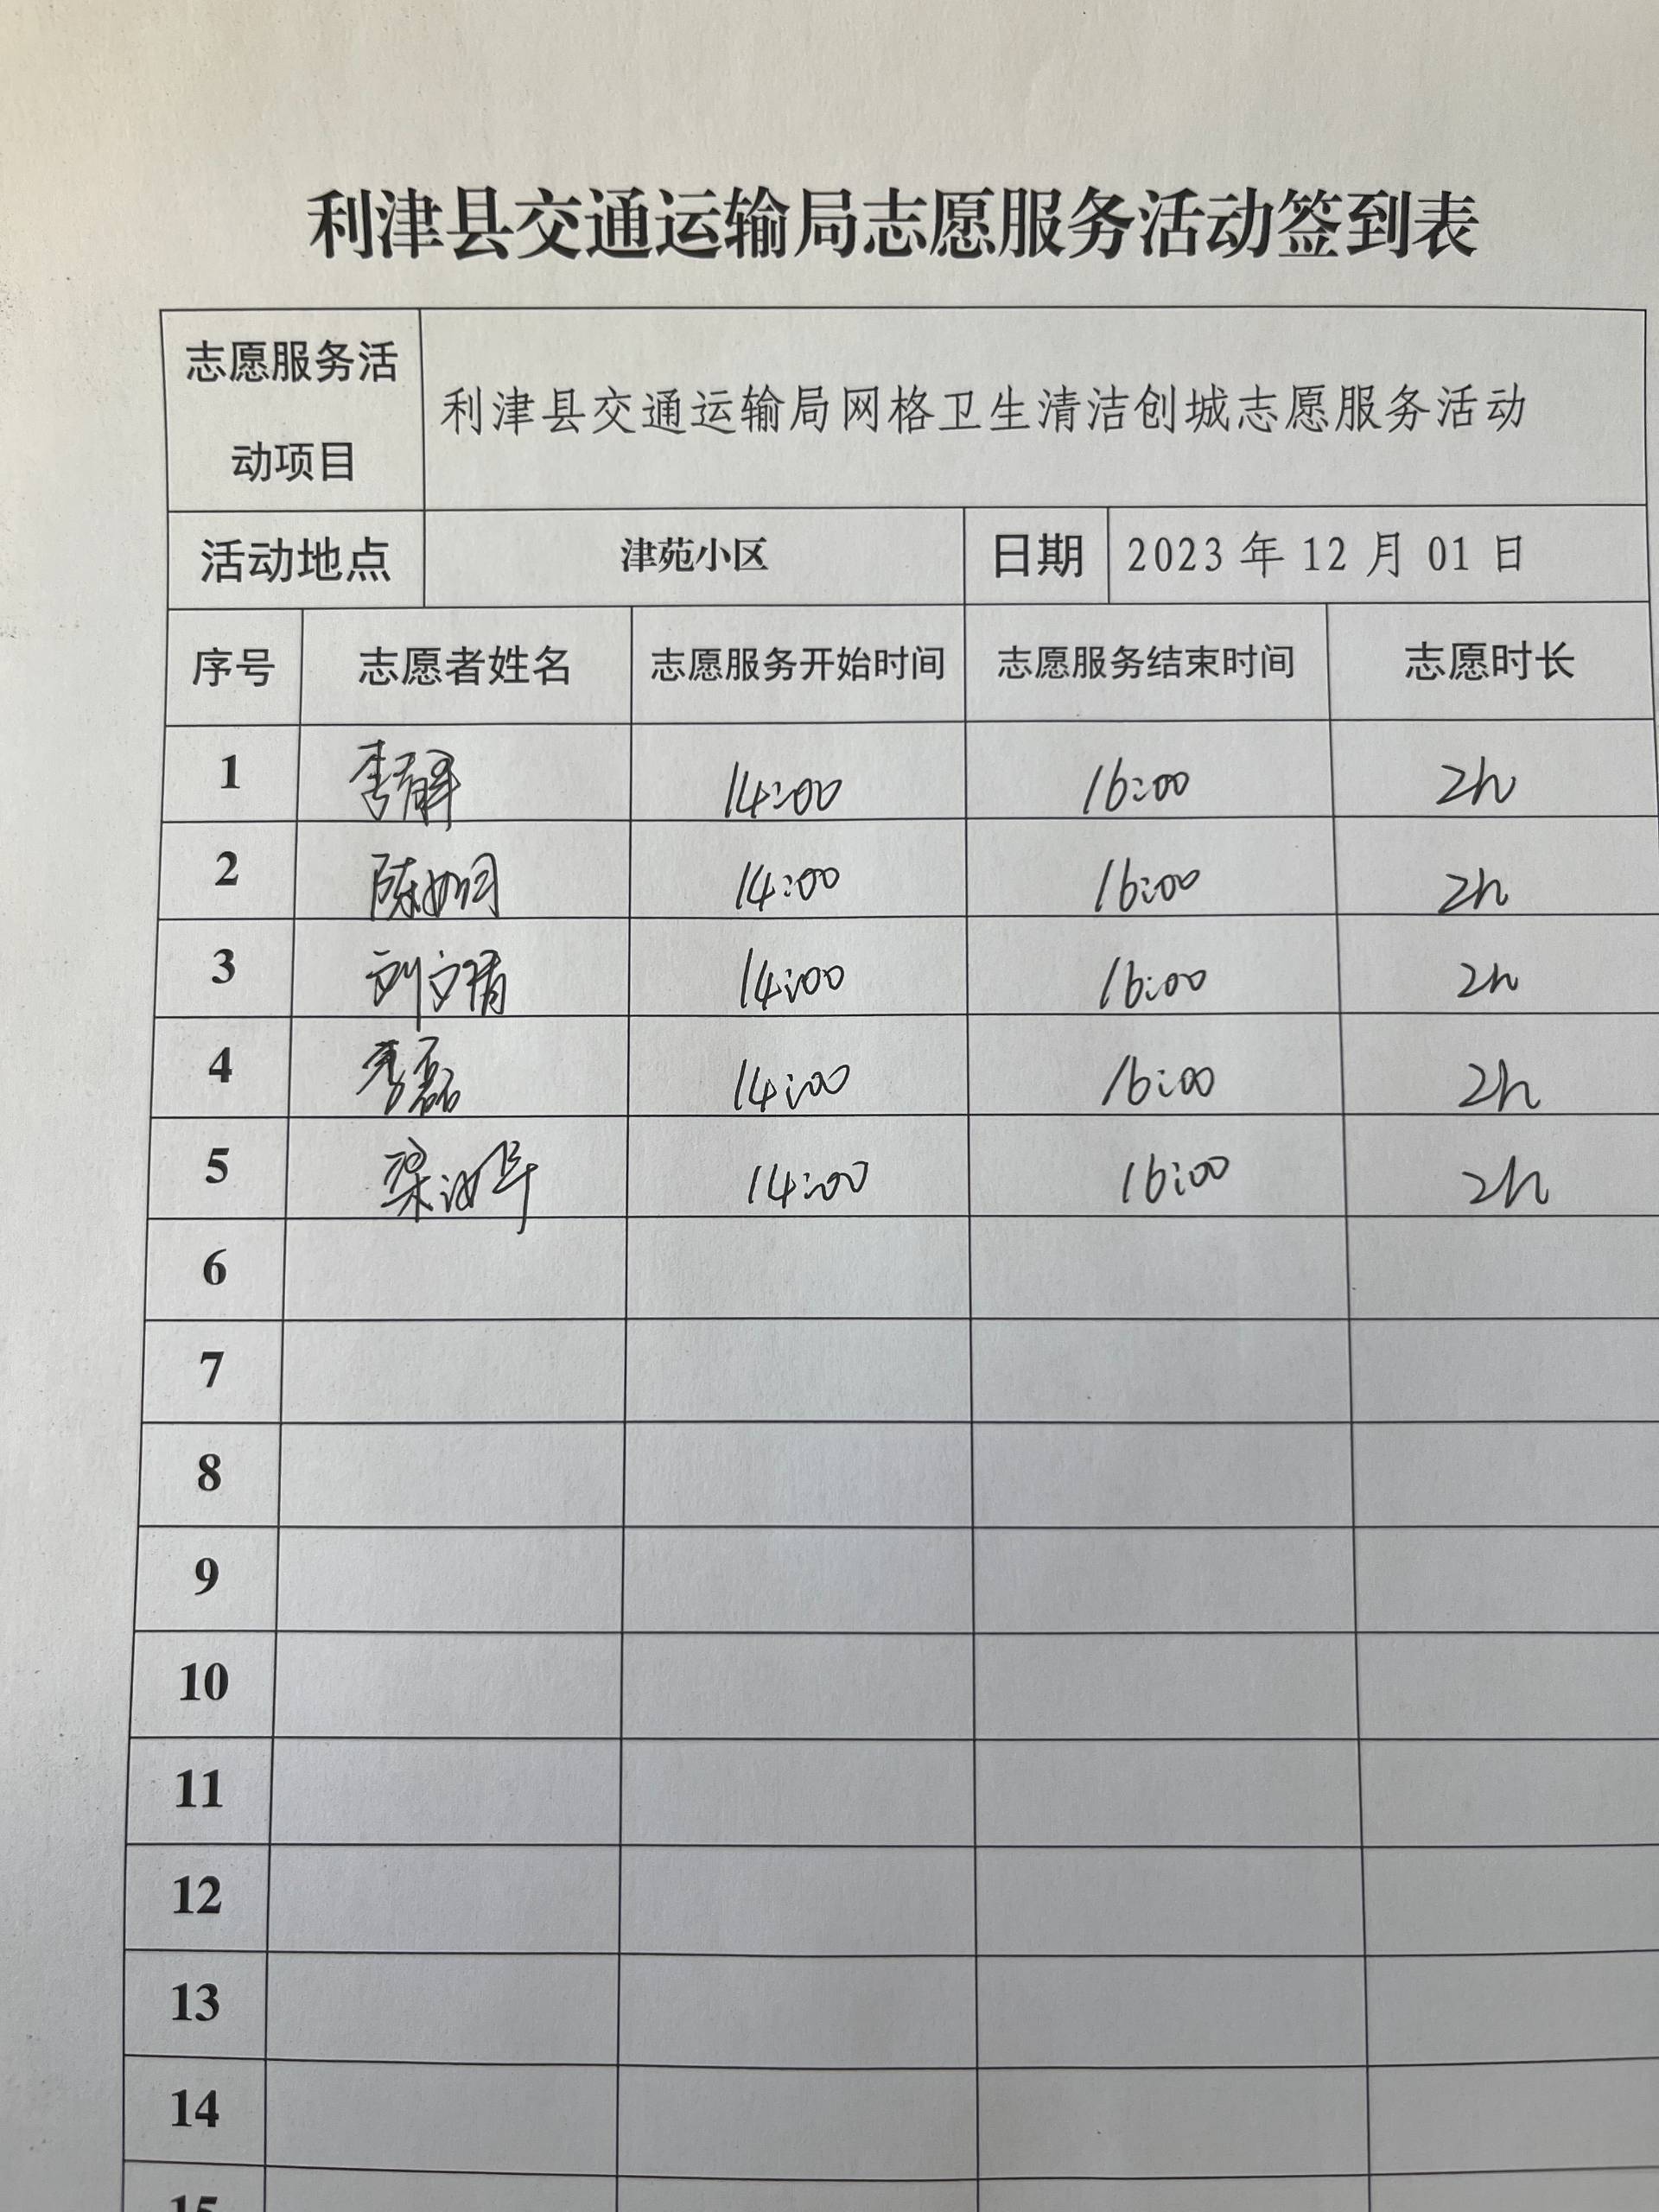 利津县交通运输局志愿服务活动签到表
志愿服务活
动项目
利津县交通运输局网格卫生清洁创城志愿服务活动
活动地点 津苑小区 日期 2023 年 12 月 01 日
序号 志愿者姓名 志愿服务开始时间 志愿服务结束时间 志愿时长
1 李 14:00 16:00 2h
2 陈 14:00 16:00 2h
3 刘文 14:00 16:00 2h
4 李磊 14:00 16:00 2h
5 梁 14:00 16:00 2h
6
7
8
9
10
11
12
13
14
15